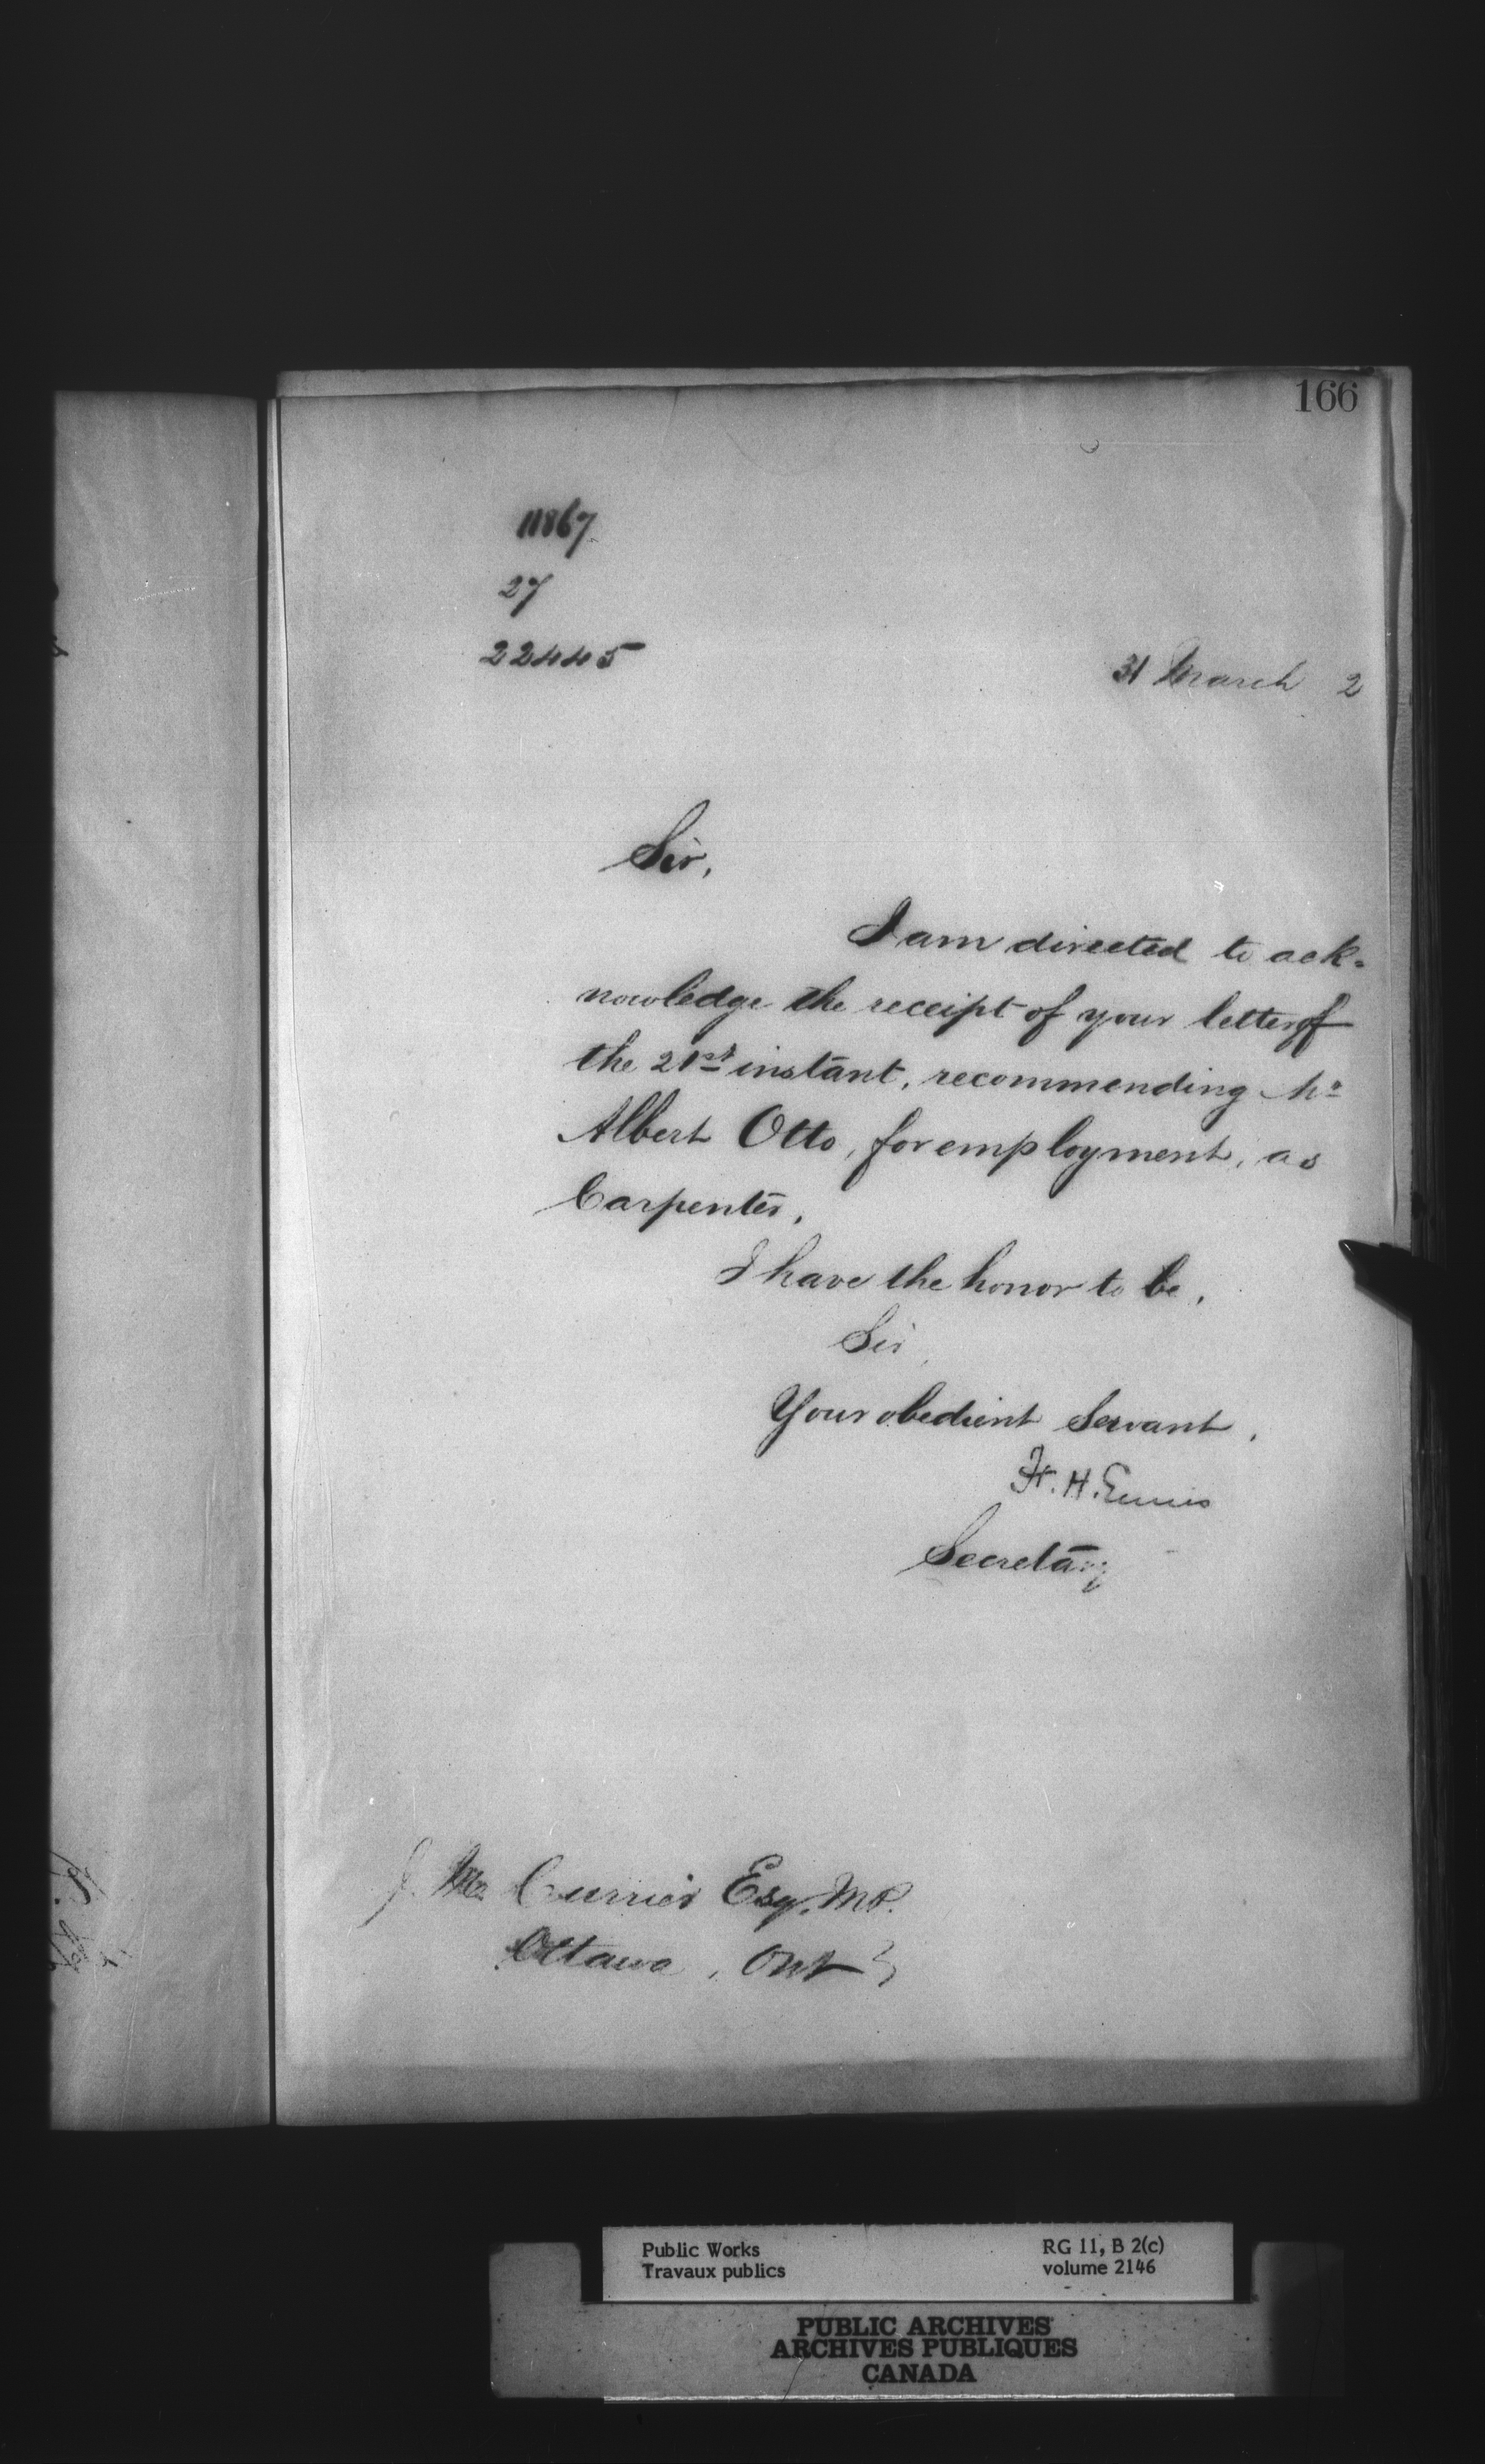 166
11867
27
22445
31 March 2
Sir,
I am directed to ack-
nowledge the receipt of your letter of
the 21st instant, recommending Mr
Albert Otto, for employment, as
Carpenter.
I have the honor to be,
Sir,
Your obedient Servant,
F. H. Ennis
Secretary
J. M. Currier Esq. M.P.
Ottawa, Ont
Public Works
Travaux publics
RG 11, B 2(c)
volume 2146
PUBLIC ARCHIVES
ARCHIVES PUBLIQUES
CANADA